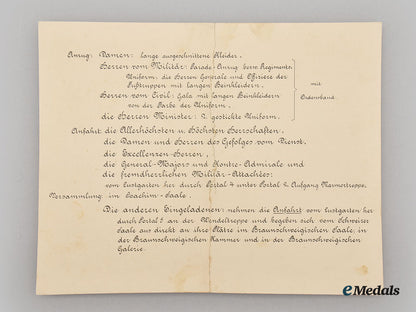 Anzug: Damen: lange ausgeschnittene Kleider,
Herren vom Militär: Parade-Anzug bezw. Regiments-
Uniform, die Herren Generale und Offiziere der
Fußtruppen mit langen Beinkleidern,
mit
Herren vom Civil: Gala mit langen Beinkleidern
Ordensband.
von der Farbe der Uniform,
die Herren Minister: 2. gestickte Uniform.
Anfahrt: die Allerhöchsten u. Höchsten Herrschaften,
die Damen und Herren des Gefolges vom Dienst,
die Excellenzen-Herren,
die General-Majors und Kontre-Admirale und
die fremdherrlichen Militär-Attachées:
vom Lustgarten her durch Portal 4 unter Portal 2 Aufgang Marmortreppe,
Versammlung im Joachim-Saale.
Die anderen Eingeladenen: nehmen die Anfahrt vom Lustgarten her
durch Portal 5 an der Wendeltreppe und begeben sich vom Schweizer
Saale aus direkt an ihre Plätze im Braunschweigischen Saale, in
der Braunschweigischen Kammer und in der Braunschweigischen
Galerie.
eMedals